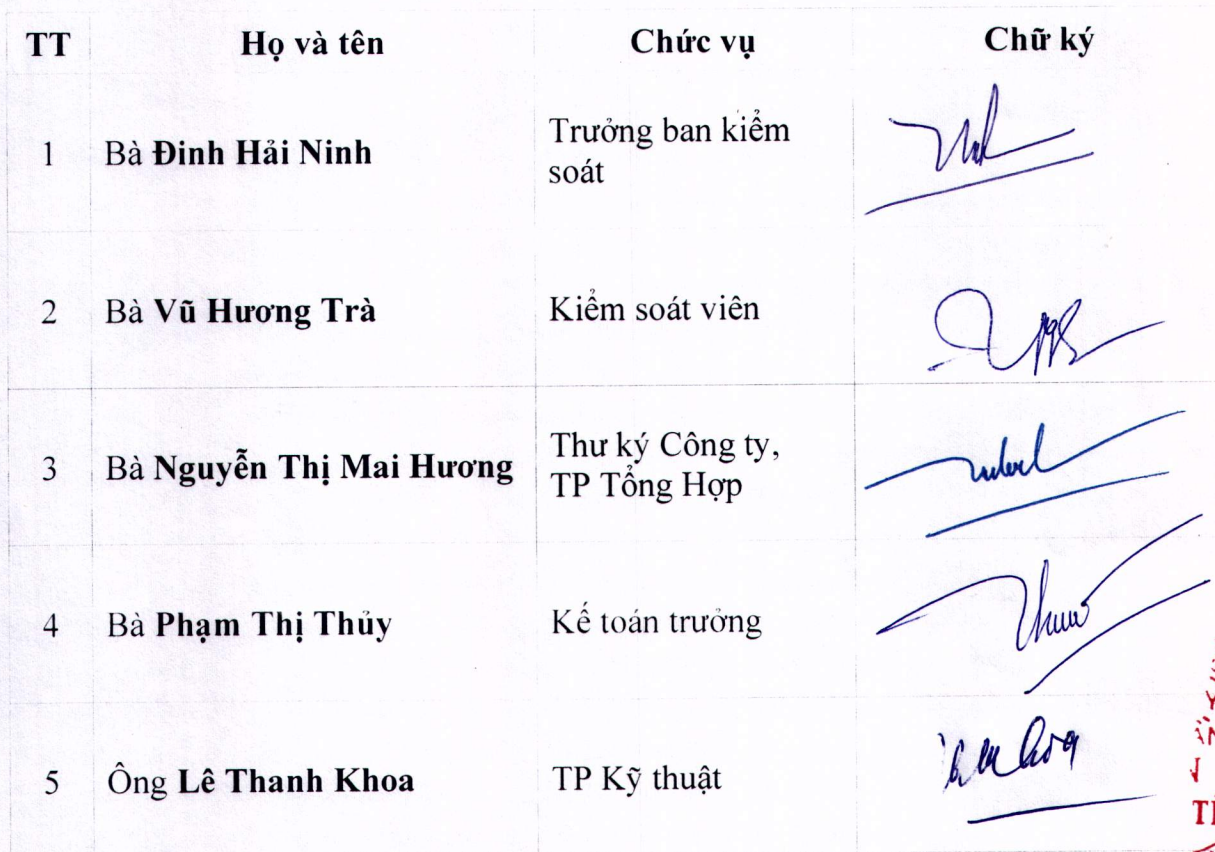 TT Họ và tên Chức vụ Chữ ký
1 Bà Đinh Hải Ninh Trưởng ban kiểm
soát
2 Bà Vũ Hương Trà Kiểm soát viên
3 Bà Nguyễn Thị Mai Hương Thư ký Công ty,
TP Tổng Hợp
4 Bà Phạm Thị Thủy Kế toán trưởng
5 Ông Lê Thanh Khoa TP Kỹ thuật